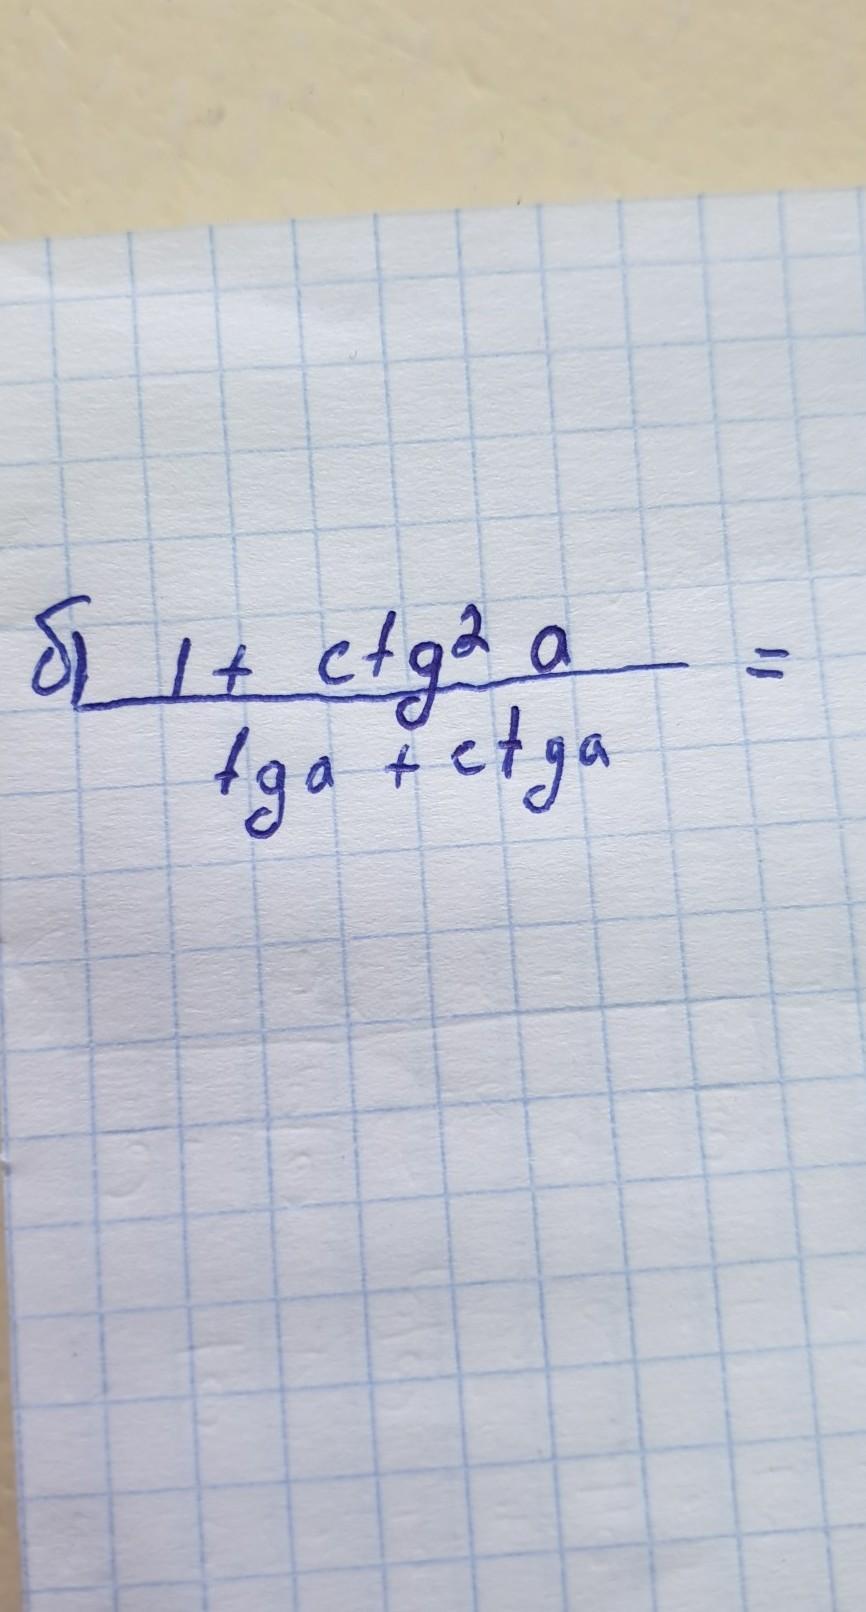 б) 1 + ctg² a =
tga + ctga